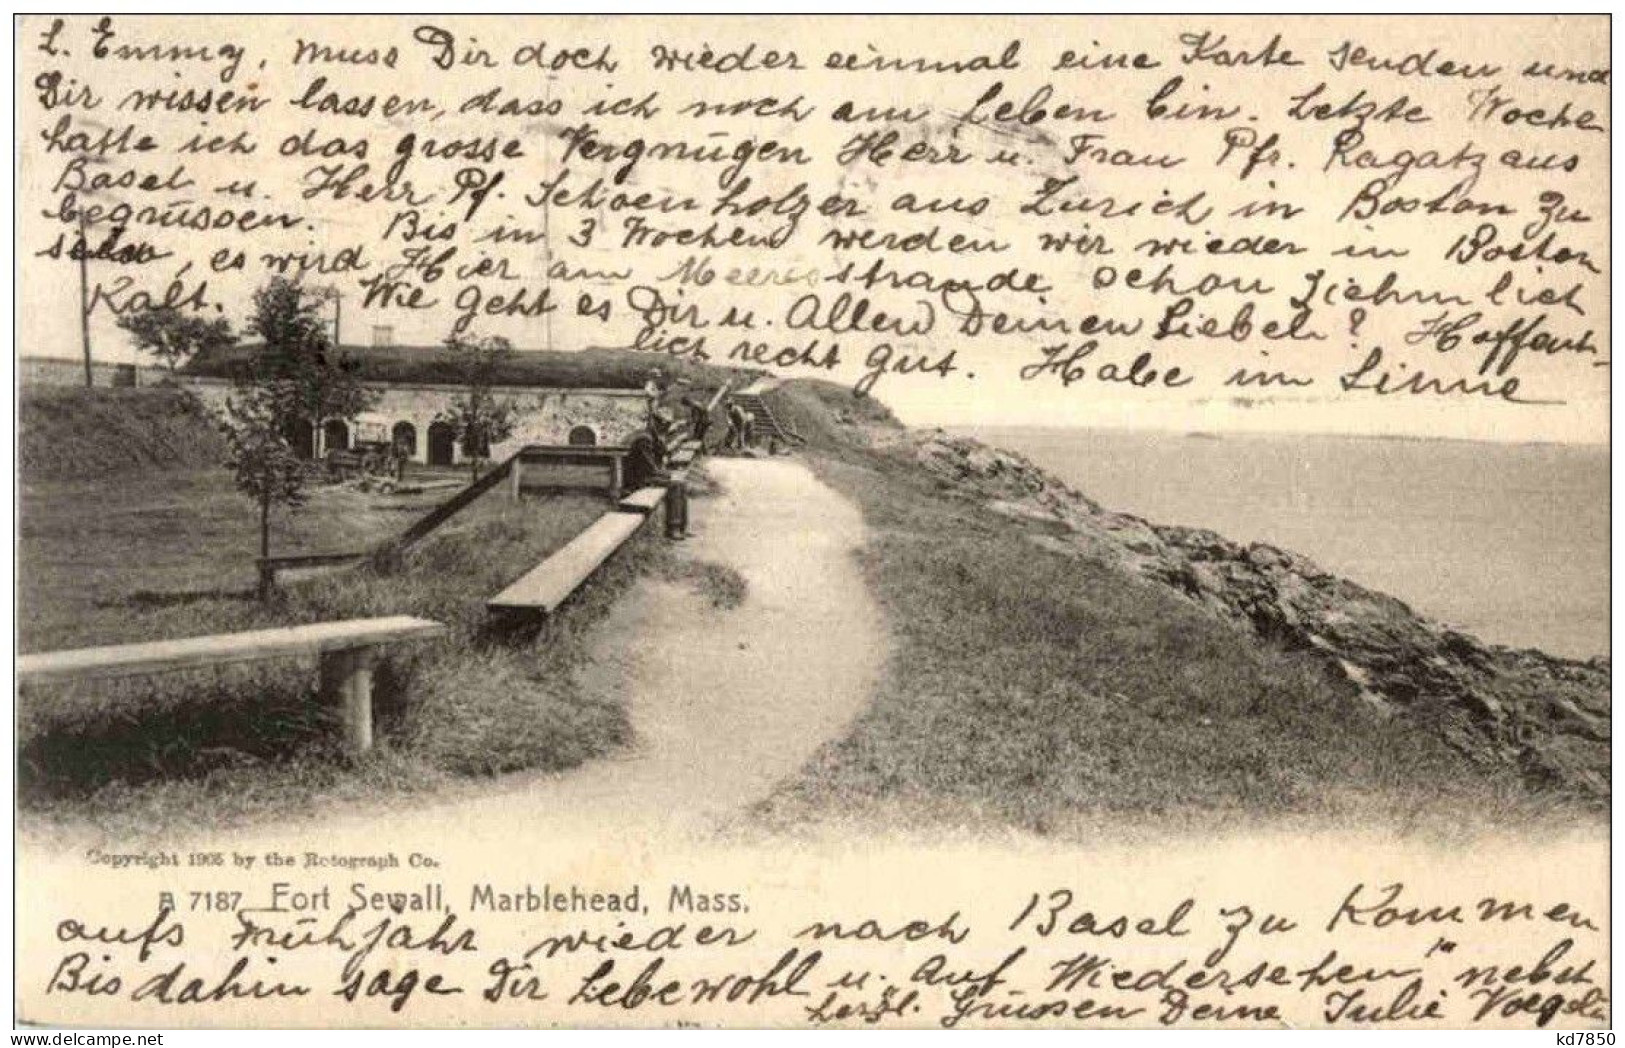 L. Emmy, muss Dir doch wieder einmal eine Karte senden und
Dir wissen lassen, dass ich noch am Leben bin. Letzte Woche
hatte ich das grosse Vergnügen Herr u. Frau Pfr. Ragatz aus
Basel u. Herr Pf. Schoenholzer aus Zürich in Boston zu
begrüssen. Bis in 3 Wochen werden wir wieder in Boston
sein, es wird Hier am Meeresstrande schon ziehmlich
Kalt. Wie geht es Dir u. Allen Deinen Lieben? Hoffent-
lich recht gut. Habe im Sinne
Copyright 1905 by the Rotograph Co.
B 7187 Fort Sewall, Marblehead, Mass.
aufs Frühjahr wieder nach Basel zu Kommen
Bis dahin sage Dir Lebewohl u. „Auf Wiedersehen" nebst
herzl. Grüssen Deine Julie Voegeli
www.delcampe.net
kd7850